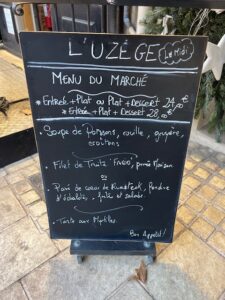 L'UZÈGE Le Midi
MENU DU MARCHÉ
* Entrée + Plat ou Plat + Dessert 24,00€
* Entrée + Plat + Dessert 28,00€
• Soupe de poissons, rouille, gruyère,
croûtons
• Filet de Truite "Fario", purée Maison
ou
• Pavé de coeur de Rumsteak,
d'échalotes, et salade.
• Tarte aux Myrtilles.
Bon Appétit!